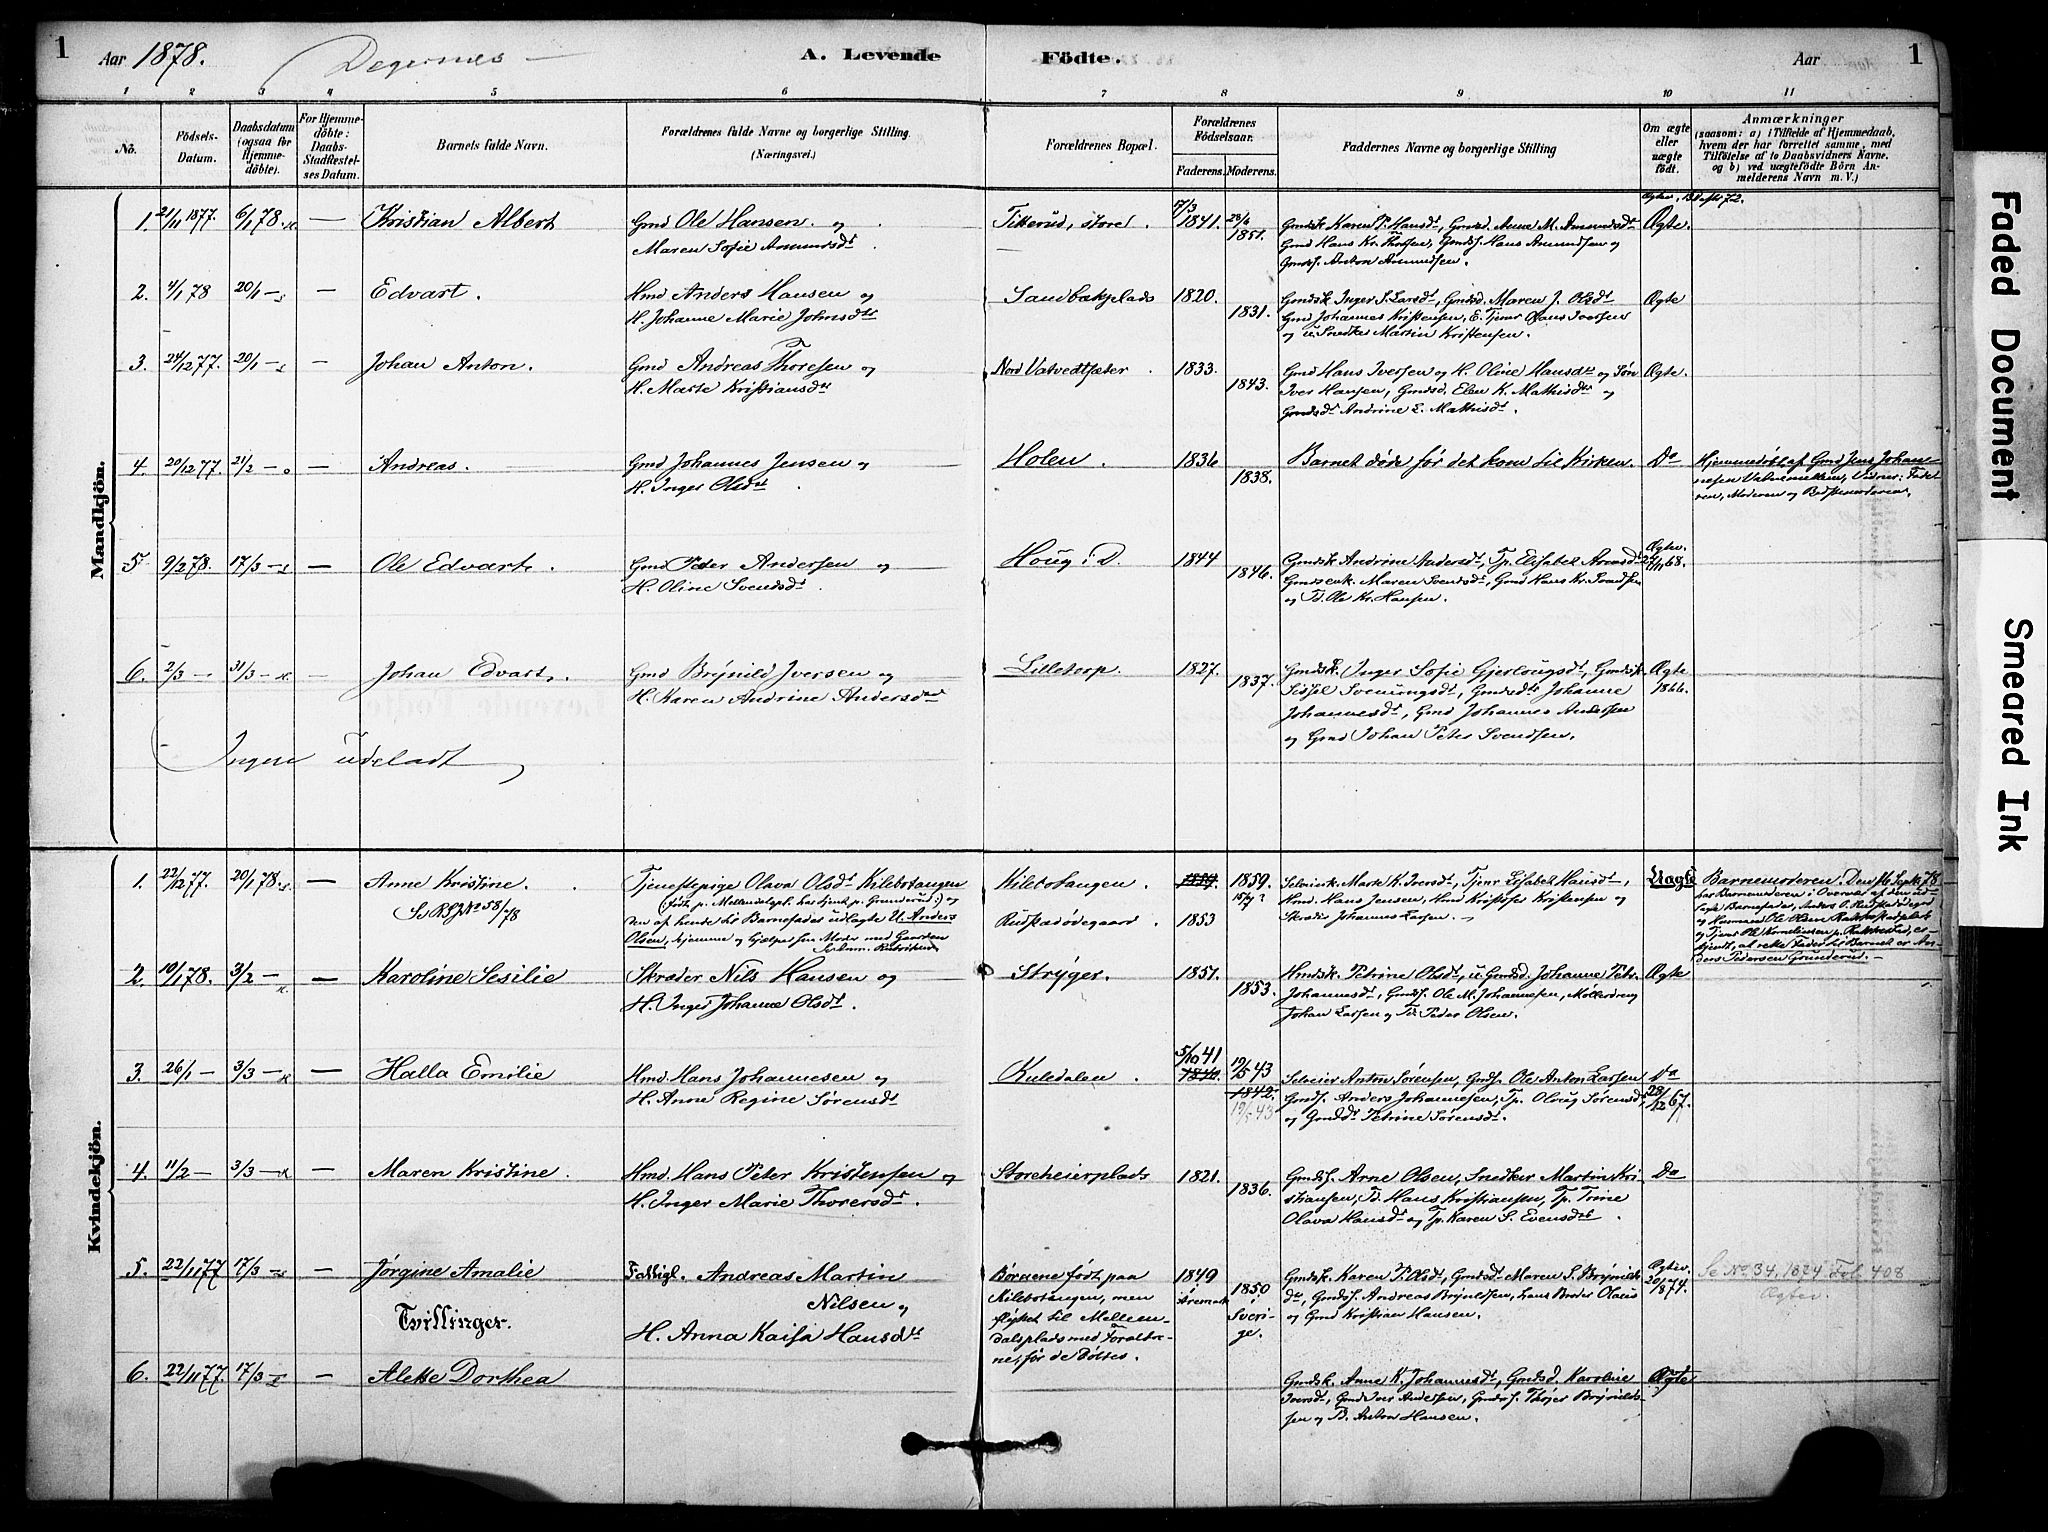 1 Aar 1878. Degernes — A. Levende Födte. Aar 1
1 2 3 4 5 6 7 8 9 10 11
No. Födsels-Datum. Daabsdatum (ogsaa for Hjemme-döbte). For Hjemme-döbte: Daabs-Stadfæstel-ses Datum. Barnets fulde Navn. Forældrenes fulde Navne og borgerlige Stilling. (Næringsvei.) Forældrenes Bopæl. Forældrenes Födselsaar. Faderens. Moderens. Faddernes Navne og borgerlige Stilling Om ægte eller uægte födt. Anmærkninger (saasom: a) i Tilfælde af Hjemmedaab, hvem der har forrettet samme, med Tilföielse af to Daabsvidners Navne, og b) ved uægtefödte Börn An-melderens Navn m. V.)
Mandkjön.
1. 21/11 1877. 6/1 78. — Kristian Albert Gmd Ole Hansen og
Maren Sofie Amundsdt
Tikkerud, store. 17/3 1841. 1851.
Gmdsk Karen P. Hansdt, Gmdsd. Anne M. Amundsdt
Gmd Hans Kr. Thorsen, Gmds. Hans Amundsen og
Gmds. Anton Amundsen.
Ægte.
2. 4/1 78 20/1 — — Edvart. Hmd Anders Hansen og
H. Johanne Marie Johnsdtr
Sandbækplads 1820. 1831.
Gmdsk Inger S. Larsdt, Gmdsd. Maren J. Olsdt
Gmd Johannes Kristensen, E. Tjener Olaus Iversen
og u. Snedker Martin Kristensen.
Ægte
3. 24/12 77. 20/1 — — Johan Anton. Gmd Andreas Thoresen og
H. Marte Kristiansdtr
Nord Vatvedtsæter. 1833. 1843.
Gmd Hans Iversen og H. Oline Hansdtr og Søn
Iver Hansen, Gmdsd. Elen K. Mathisdtr og
Gmdsdt Andrine L. Mathisdt.
Ægte.
4. 20/12 77. 21/2 — — Andreas. Gmd Johannes Jensen og
H. Inger Olsdtr.
Holen. 1836 1838.
Barnet døde før det kom til Kirken.
Do
Hjemmedøbt af Gmd Jens Johan-
nesen, Vidner: Fade-
ren, Moderen og Bedstemoderen.
5. 9/2 78. 17/3 — — Ole Edvart. Gmd Peder Andersen og
H. Oline Svendsdt.
Houg i D. 1844 1846.
Gmdsk Andrine Andersdt, Tp. Elisabet Arvesdt
Gmdsenk. Maren Svendsdt, Gmd Hans Kr. Svendsen
og Td. Ole Kr. Hansen.
Ægte. 68.
6. 2/3 — 31/3 — — Johan Edvart. Gmd Brynild Iversen og
H. Karen Andrine Andersdtr
Lilletorp. 1827. 1837.
Gmdsk. Inger Sofie Gjerlougsdt, Gmdsk
Sissel Sveningsdt, Gmdsdtr Johanne
Johannesdt, Gmd Johannes Andersen
og Gmd Johan Peter Svendsen.
Ægte 1866.
Ingen udeladt
Kvindekjön.
1. 22/12 77. 20/1 78. — Anne Kristine.
Se No 58/78
Tjenestepige Olava Olsdt Kilebotangen
(født p. Mellendalspl. har tjent p. Grunderud:) og
den af hende til Barnefader udlagte U. Anders
Olsen, hjemme og Hjælper sin Moder med Gaarden
Kilebotangen Rudstadødegaard. 1859. 1853
Selveiersk. Marte K. Iversdt, Tjener Lisabet Hansdt,
Hmd. Hans Jensen, Hmd Kristofer Kristensen og
Skræder Johannes Larsen. —
Uægte
Barnemoderen. Den 16 Septbr 78
har Barnemoderen i Overvær af den ud-
lagte Barnefader, Anders O. Rudstadødegrd
og Husmand Ole Olsen Rakkestadplads
og Tjener Ole Kornelisen p. Rakkestad, er-
kjendt, at rette Fader til Barnet er An-
ders Pedersen Grunderud. —
2. 10/1 78. 3/2 — — Karoline Sesilie Skræder Nils Hansen og
H. Inger Johanne Olsdt.
Stryger. 1851. 1853.
Hmdsk. Petrine Olsdt, u. Gmdsd. Johanne Petr.
Johannesdt, Gmds. Ole M. Johannesen, Møllerdreng
Johan Larsen og Td. Peder Olsen.
Ægte
3. 26/1 — 3/3 — — Halla Emilie Hmd. Hans Johannesen og
H. Anne Regine Sørensdt
Kuledalen. 5/10 41 1840. 19/5 43 1842. 19/5 43
Selveier Anton Sørensen, Gmds. Ole Anton Larsen
Gmds. Anders Johannesen, Tp. Oloug Sørensdt,
og Gmdsdt Petrine Sørensdt.
Do 28/12 67.
4. 11/2 — 3/3 — — Maren Kristine. Hmd. Hans Peter Kristensen og
H. Inger Marie Thoresdt.
Storeheierplads 1821. 1836.
Gmds. Arne Olsen, Snedker Martin Kri-
stiansen, Td. Hans Kristiansen, Tp. Trine
Olava Hansdt og Tp. Karen S. Evensdtr.
Do
5. 22/11 77 17/3 — — Jørgine Amalie
Tvillinger.
Fattigl. Andreas Martin
Nilsen og
H. Anna Kaisa Hansdtr
Børnene født paa
Kilebotangen, men
flyttet til Mellen-
dalsplads med Foræld-
ne, før de døbtes.
1849 i Aremark 1850 i Sveri-
ge.
Gmdsk. Karen P. Olsdt, Gmdsdt Maren S. Brynilds-
dtr, Gmds. Andreas Brynildsen, hans Broder Olaus
og Gmd Kristian Hansen.
Ægte. 20/ 1874.
Se No 34, 1874 Fol. 408
Ægter.
6. 22/11 77. 17/3 — — Alette Dorthea
Gmdsk. Anne K. Johannesdt, Gmdsd. Karoline
Iversdt, Gmd Iver Andersen, Gmds. Thojer Brynild-
sen og B. Anton Hansen.
Ægte
Faded Document
Smeared Ink